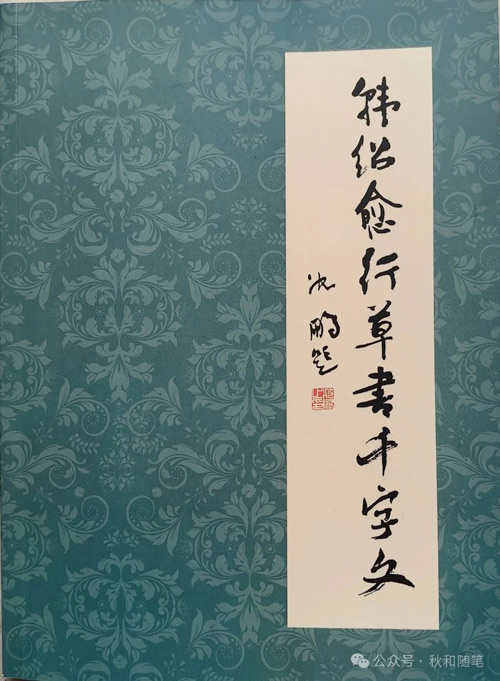 韩绍愈行草书千字文
沈鹏题
公众号·秋和随笔